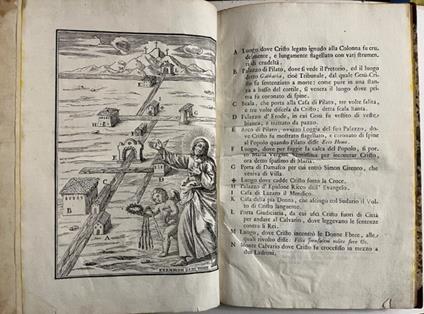 A Luogo, dove Cristo legato ignudo alla Colonna fu cru-
delmente, e lungamente flagellato con varj strumen-
ti di crudeltà.
B Palazzo di Pilato, dove si vede il Pretorio, ed il luogo
detto Gabbatha, cioè Tribunale, dal quale Gesù Cri-
sto fu sentenziato a morte: come pure in una stan-
za a basso del cortile, si venera il luogo dove pri-
ma fu coronato di spine.
C Scala, che porta alla Casa di Pilato, tre volte salita,
e tre volte discesa da Cristo; detta Scala Santa.
D Palazzo d'Erode, in cui Gesù fu vestito di veste
bianca, e trattato da pazzo.
E Arco di Pilato, ovvero Loggia del suo Palazzo, do-
ve Cristo fu mostrato flagellato, e coronato di spine
al Popolo quando Pilato disse Ecce Homo.
F Luogo, dove per fuggir la calca del Popolo, si por-
tò Maria Vergine per incontrar Cristo,
ora detto spasimo di Maria.
G Porta di Damasco per cui entrò Simon Cireneo, che
veniva di Villa.
✠ Luogo dove cadde Cristo sotto la Croce.
H Palazzo d'Epulone Ricco dell'Evangelo.
I Casa di Lazaro il Mendico.
K Casa della pia Donna, che asciugò col Sudario il Vol-
to di Cristo languente.
L Porta Giudiciaria, da cui uscì Cristo fuori di Città
per andare al Calvario, dove leggevano le sentenze
contro li Rei.
M Luogo, dove Cristo incontrò le Donne Ebree, alle
quali rivolto disse: Filiæ Jerusalem nolite flere &c.
N Monte Calvario dove Cristo fu crocefisso in mezzo a
due Ladroni.
B
C
A
EXEMPLUM DEDI VOBIS